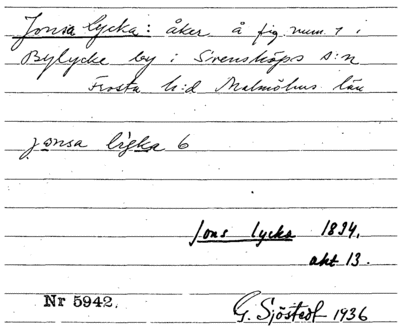 Jonsa lycka: åker å fig num 1 i
Bylycke by i Svensköps s:n
Frosta h:d Malmöhus län
jonsa ligka 6
Jons lycka 1834.
akt 13.
Nr 5942.
G. Sjöstedt 1936